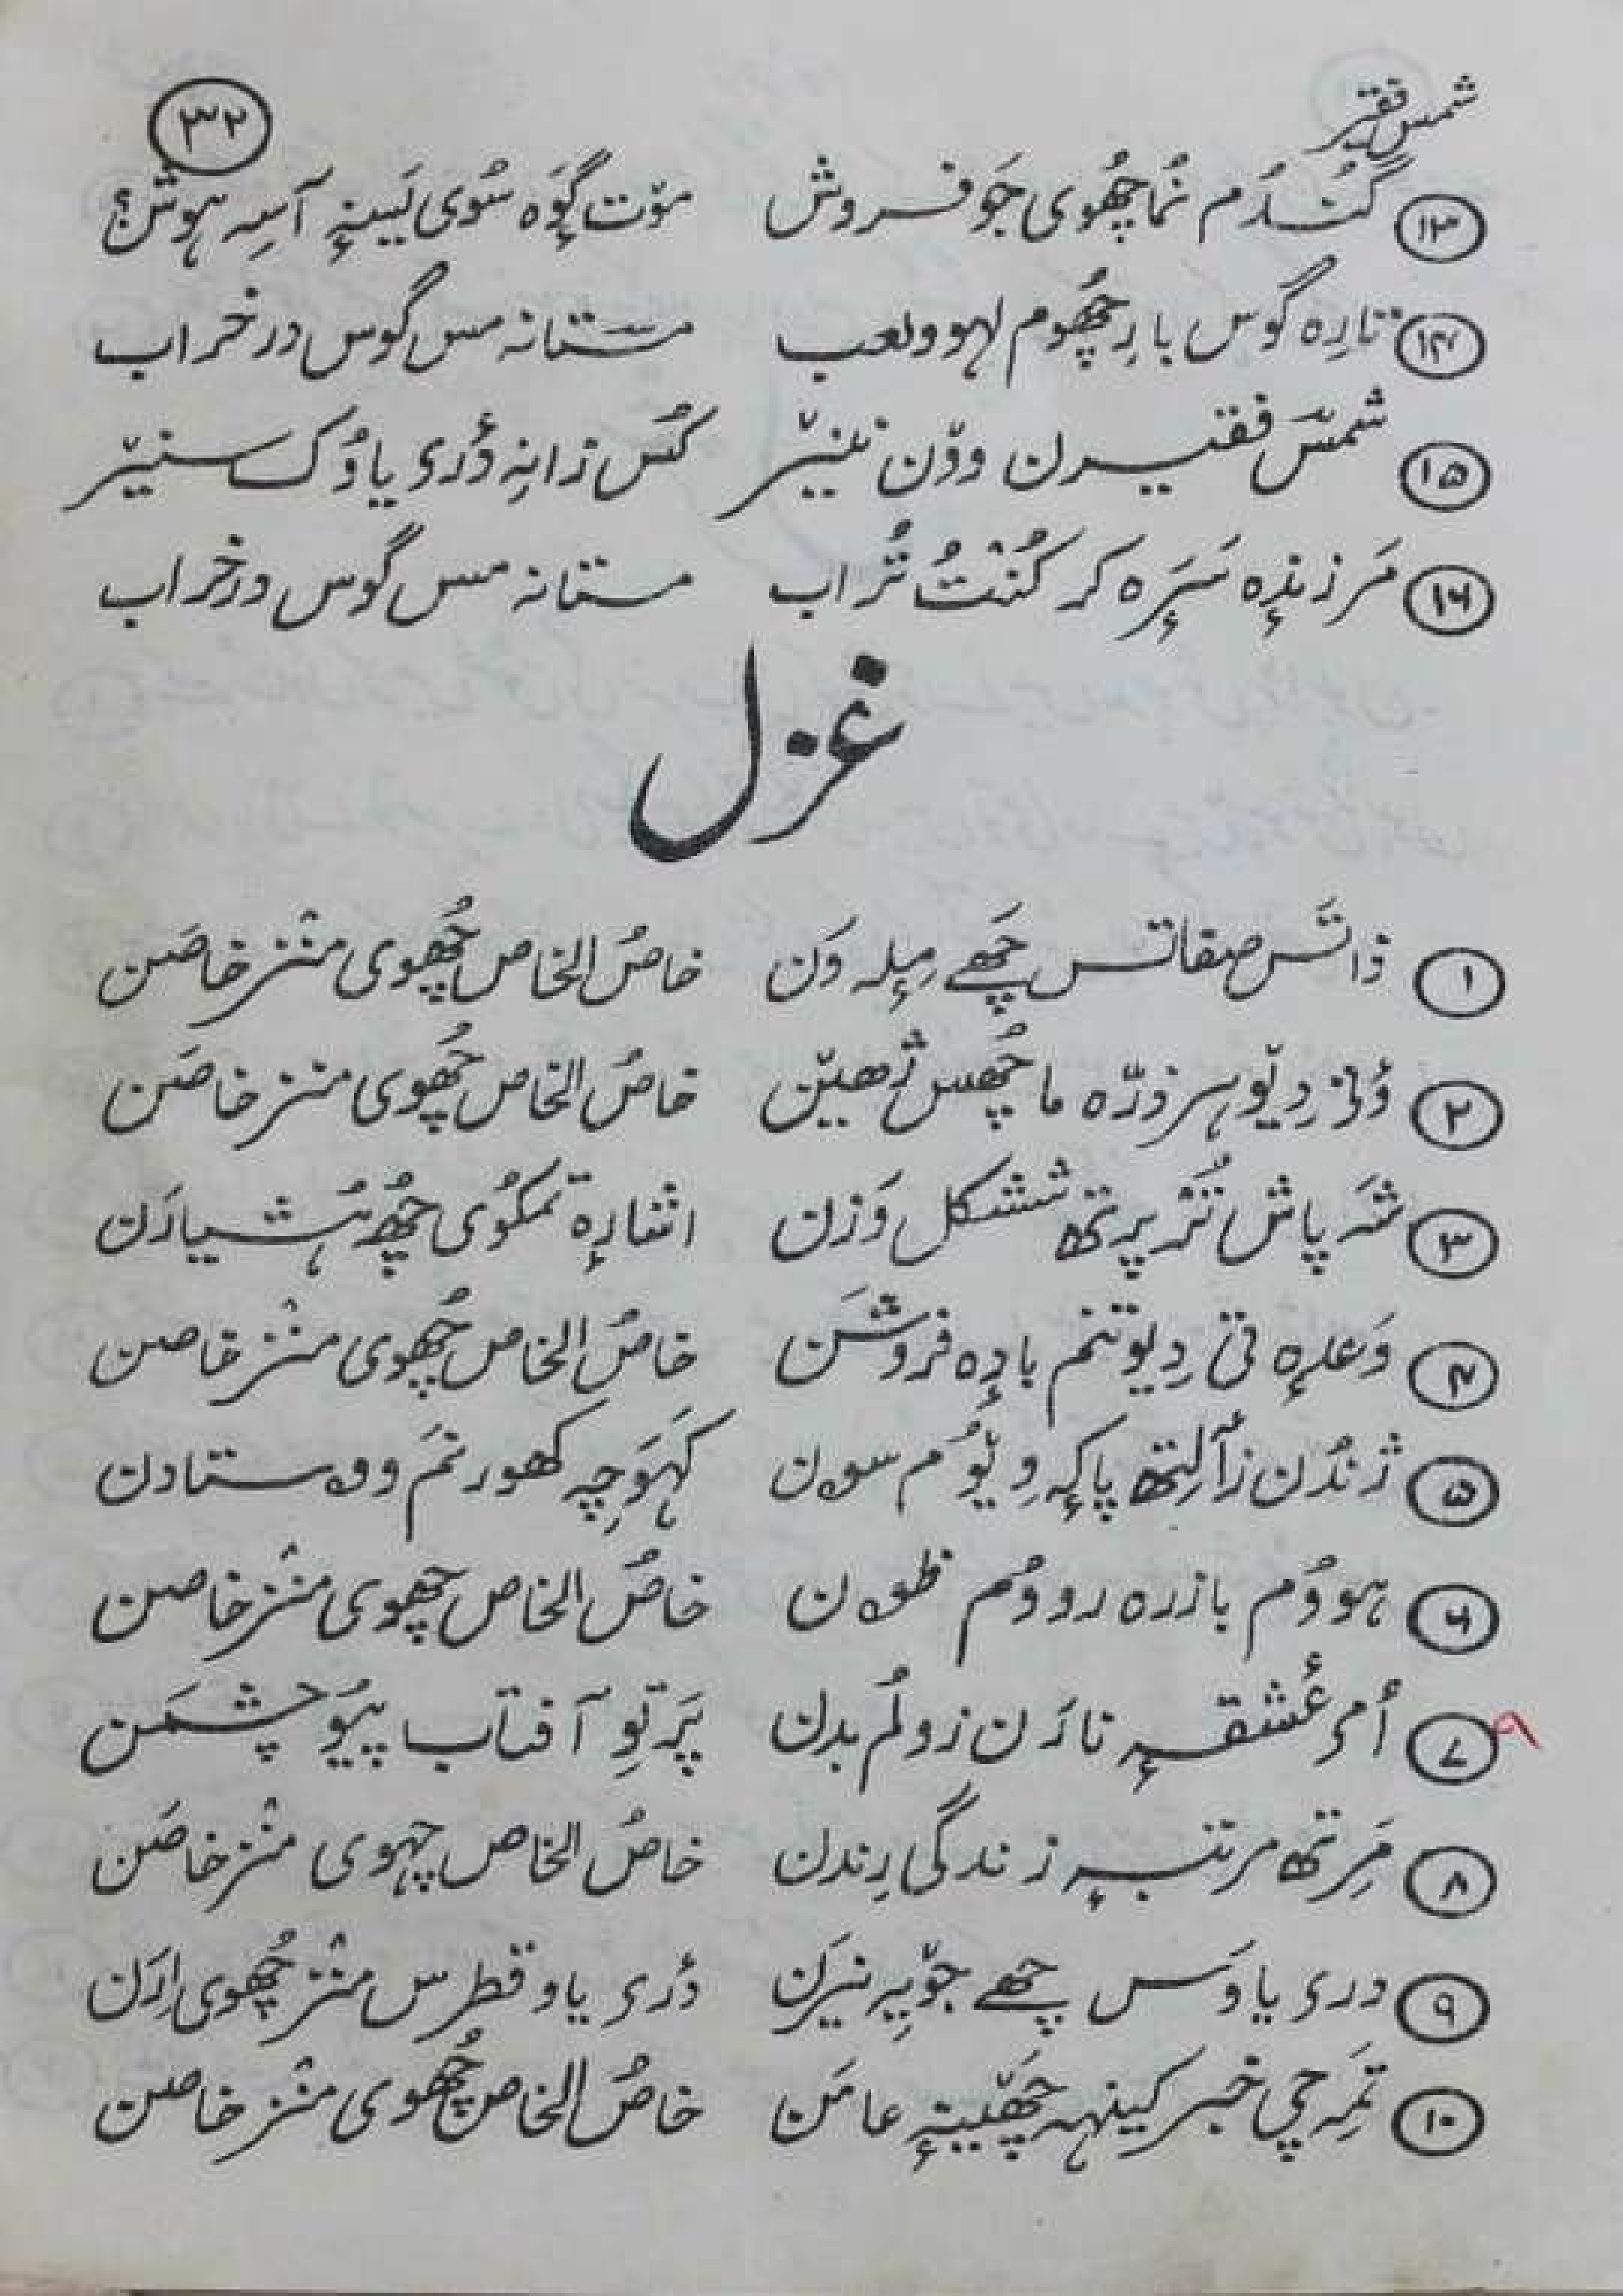 شمس فقیر
۳۲
۱۳ گندُم نُما چھُوی جَو فروش موٚت گوٚہ سُوی یَیینہٕ آسہِ ہوش؟
۱۴ تارِہ گوس بارِ چھُوم لہو ولعب مستانہ مس گوس در خراب
۱۵ شمسؔ فقیرن ووٚن نیٚنیٚر کُس زانہِ دٔری یاوُک سنیٚر
۱۶ مَر زندہٕ سَرٕہ کر کُنْتُ تُراب مستانہ مس گوس در خراب
غزل
۱ ذاتَس صفاتس چَھے مِیلہٕ وَن خاصُ الخاص چُھوی منٛز خاصَن
۲ وٕنی دِیوٚ ہر ذرّہ ما چُھس ژھیٚن خاصُ الخاص چُھوی منز خاصَن
۳ شہَ پاش تٔر پرتھ شکل وَزن اشارٕہ تمکُوی چُھ ہُشیارَن
۴ وَعدہٕ نی دِیوٚتنم بادٕہ فروشَن خاصُ الخاص چُھوی منٛز خاصن
۵ ژندُن زٲلِتھ پاکہٕ دِیوٚم سون کَہوَچہِ کھورنَم ووستادن
۶ ہووُم بازرہ رووُم ظون خاصُ الخاص چھوی منٛز خاصن
۷ أمی عٔشقہٕ نارَن زولُم بدن پَرتوِ آفتاب پیوٚ چشمَن
۸ مَرِتھ مرتبہٕ زندگی رِندن خاصُ الخاص چہوی منٛز خاصَن
۹ دری یاوَس چھے جوٚیہِ نیرَن دٔری یاو قطرس منٛز چُھوی اِرَن
۱۰ تمَہِ چی خبر کینہہ چَھیٚنہٕ عامَن خاصُ الخاص چُھوی منٛز خاصن